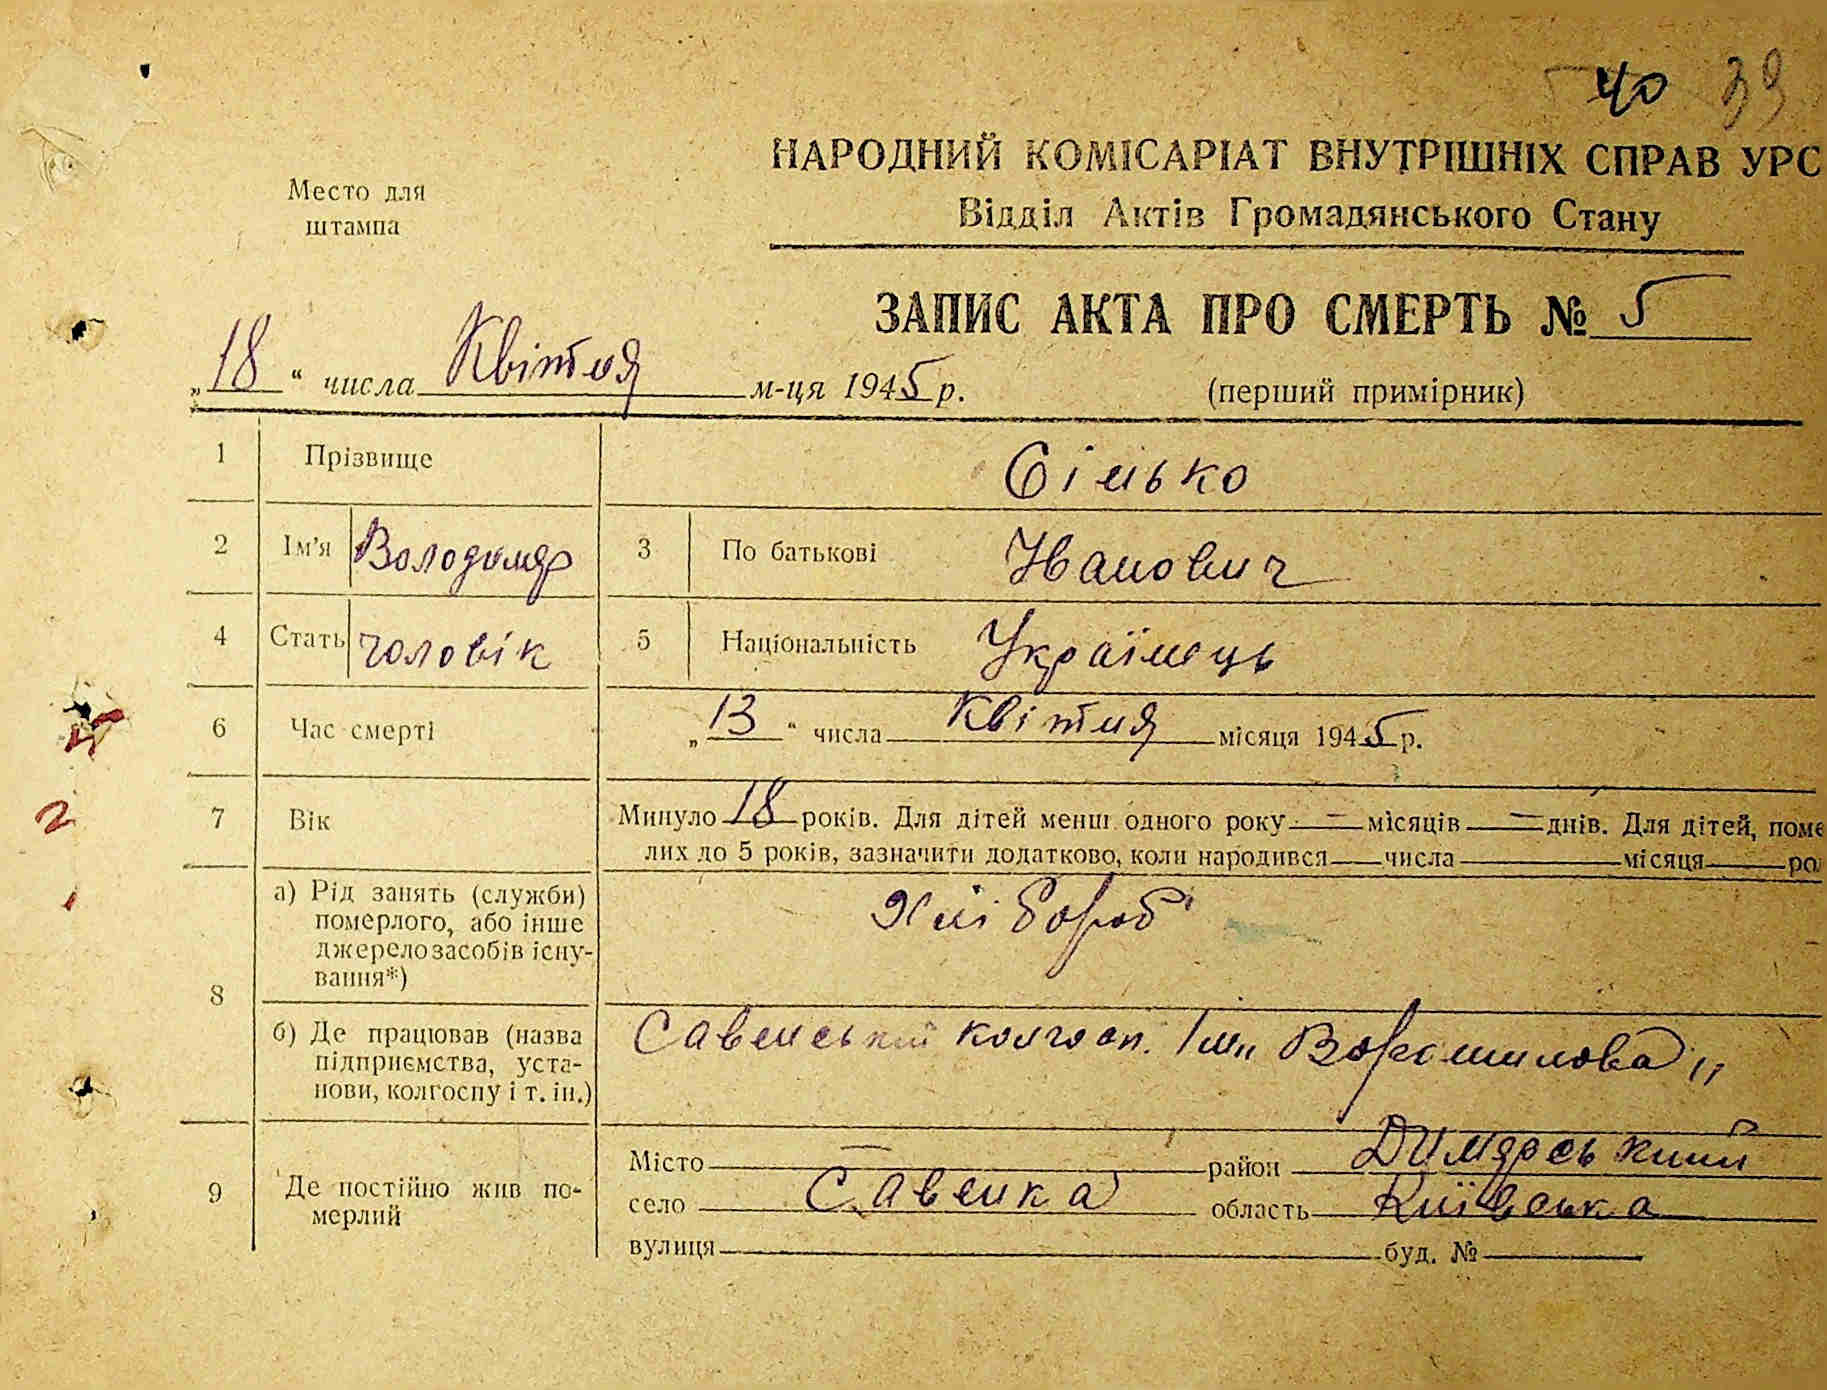 40 39
НАРОДНИЙ КОМІСАРІАТ ВНУТРІШНІХ СПРАВ УРС
Место для
штампа
Відділ Актів Громадянського Стану
ЗАПИС АКТА ПРО СМЕРТЬ № 5
„18“ числа Квітня м-ця 1945 р.
(перший примірник)
1 Прізвище Сінько
2 Ім'я Володимір 3 По батькові Іванович
4 Стать чоловік 5 Національність Українець
6 Час смерті „13“ числа Квітня місяця 1945 р.
7 Вік Минуло 18 років. Для дітей менш одного року — місяців — днів. Для дітей, поме
лих до 5 років, зазначити додатково, коли народився числа місяця ро
8 а) Рід занять (служби)
померлого, або інше
джерело засобів існу-
вання*)
Хлібороб
б) Де працював (назва
підприємства, уста-
нови, колгоспу і т. ін.)
Савенський колгосп. Ім„ Ворошилова"
9 Де постійно жив по-
мерлий
Місто — район Димерський
село Савенка область Київська
вулиця буд. №
2